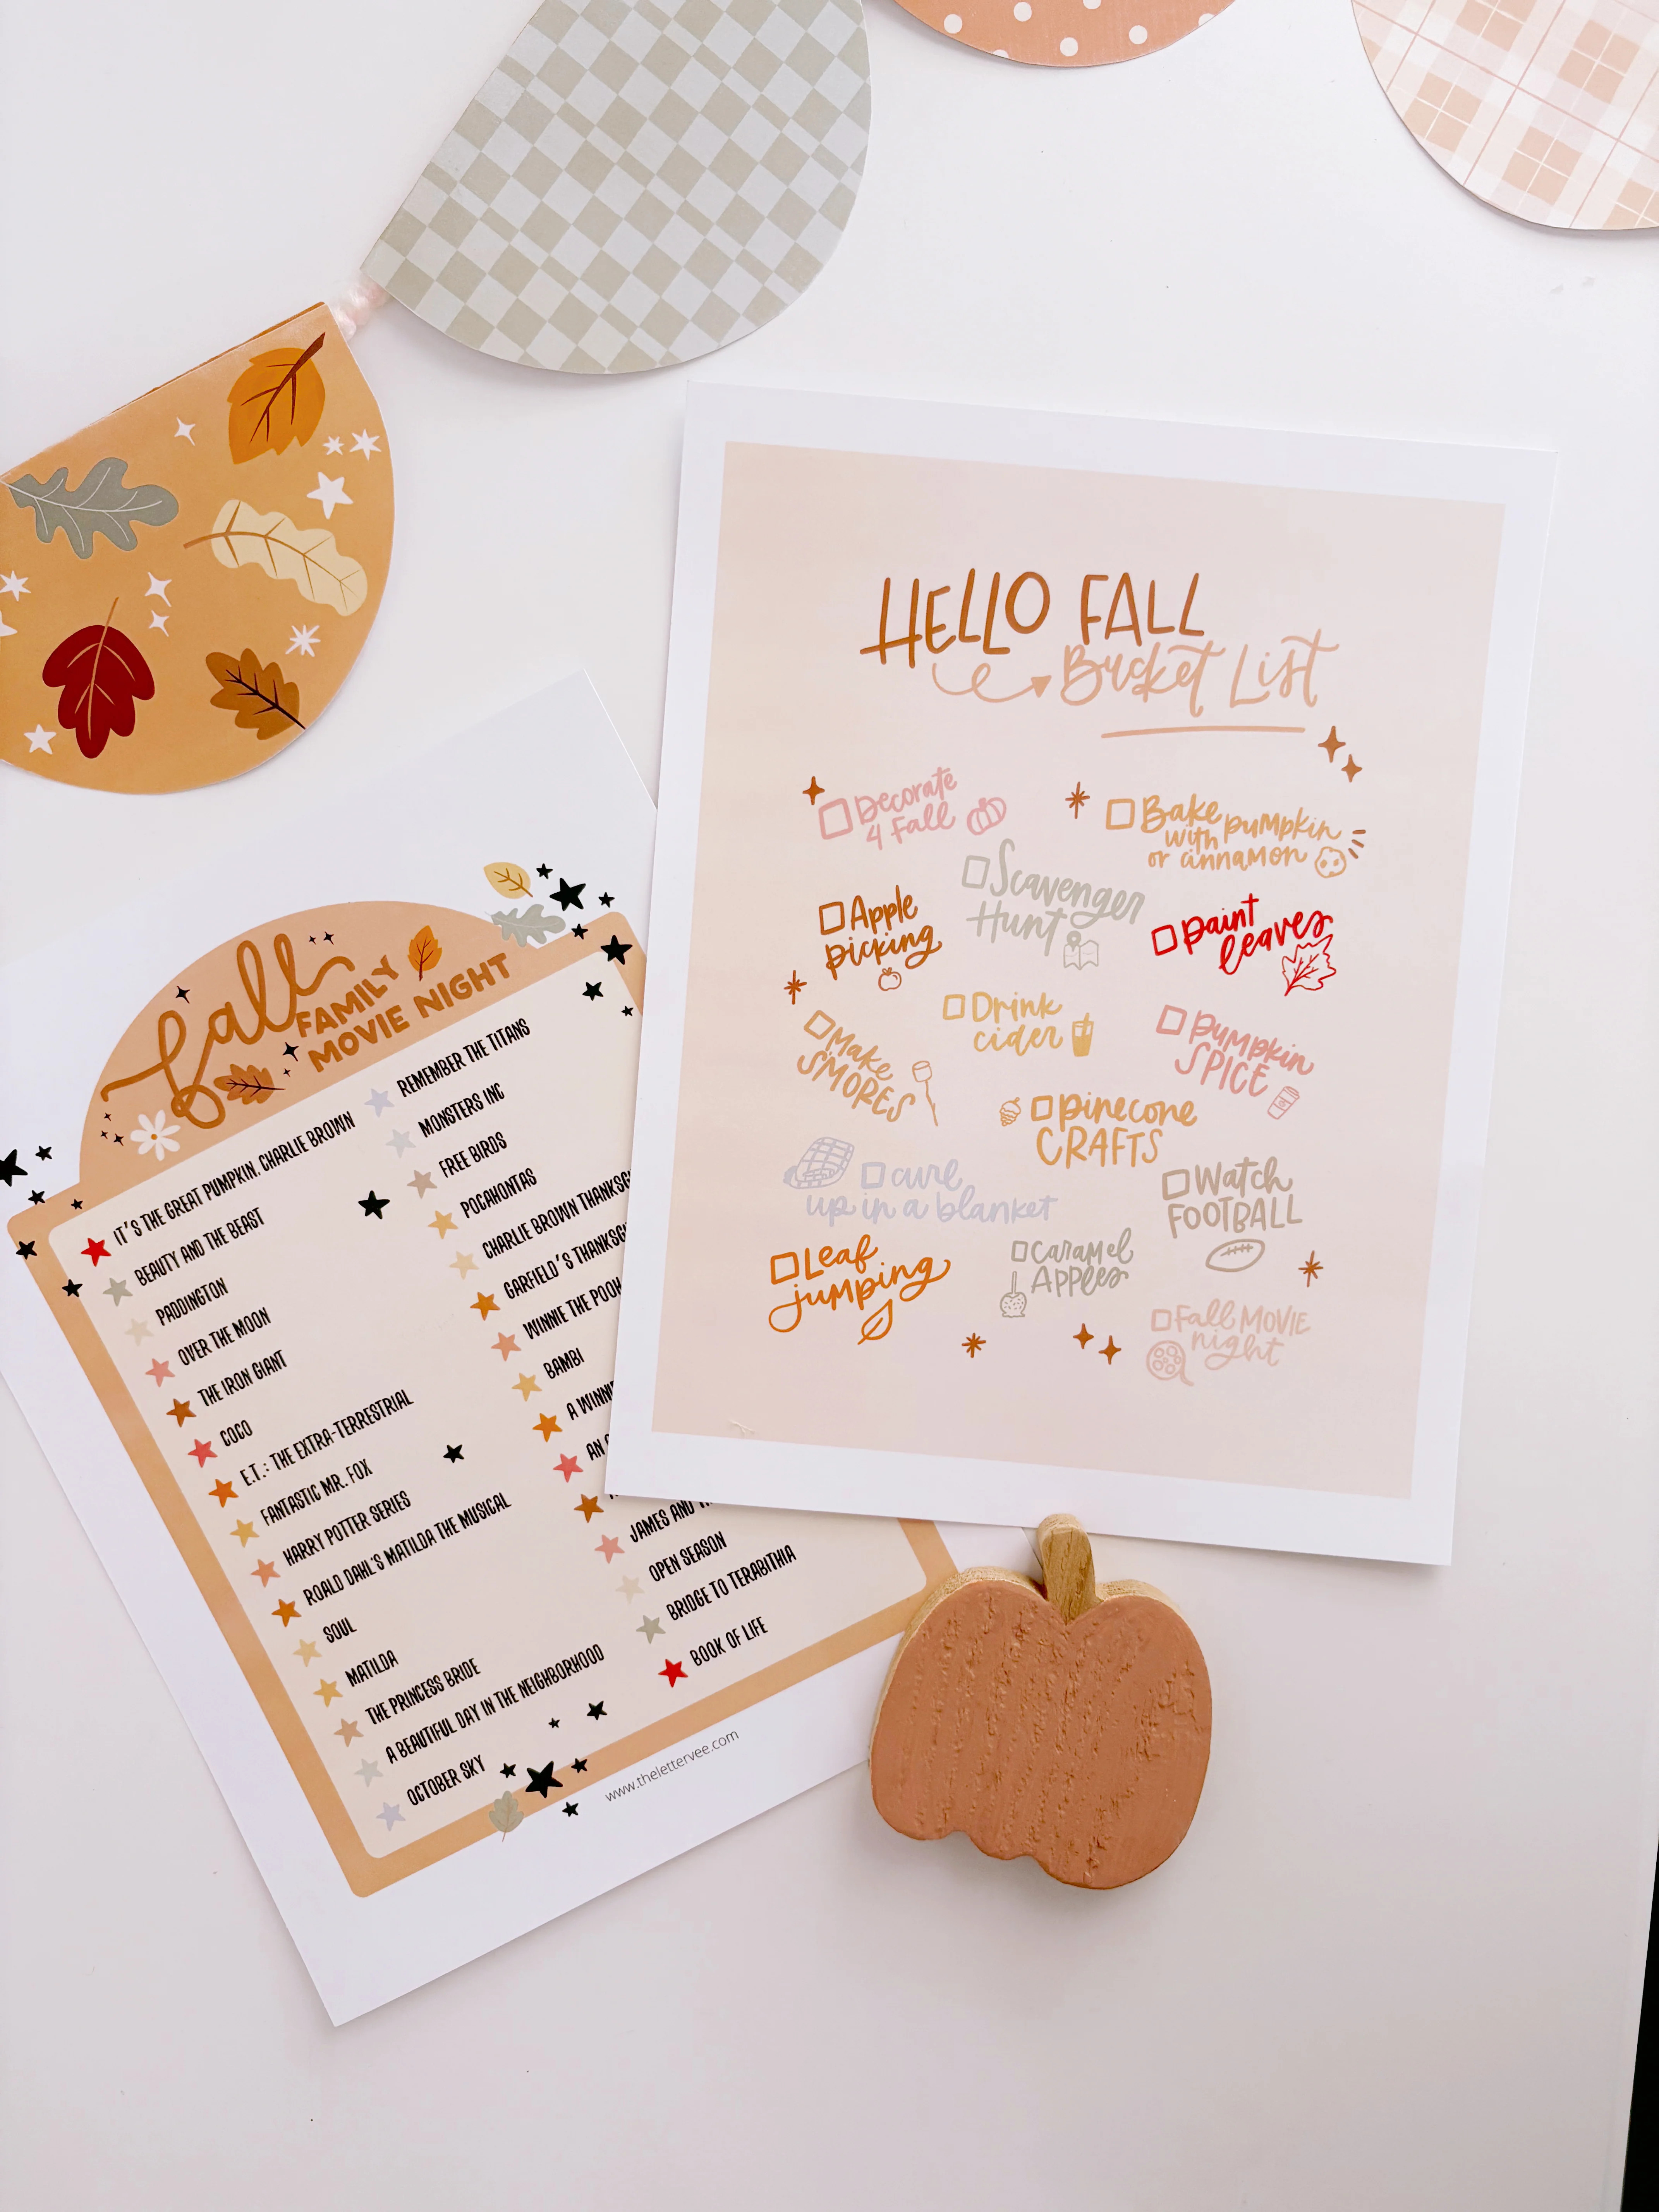 HELLO FALL
Bucket List
Decorate
4 Fall
Bake pumpkin
with
or cinnamon
Scavenger
Hunt
Apple
picking
paint
leaves
Drink
cider
Make
S'MORES
pumpkin
SPICE
pinecone
CRAFTS
curl
up in a blanket
Watch
FOOTBALL
Leaf
jumping
Caramel
Apples
Fall MOVIE
night
fall
FAMILY
MOVIE NIGHT
IT'S THE GREAT PUMPKIN, CHARLIE BROWN
BEAUTY AND THE BEAST
PADDINGTON
OVER THE MOON
THE IRON GIANT
COCO
E.T.: THE EXTRA-TERRESTRIAL
FANTASTIC MR. FOX
HARRY POTTER SERIES
ROALD DAHL'S MATILDA THE MUSICAL
SOUL
MATILDA
THE PRINCESS BRIDE
A BEAUTIFUL DAY IN THE NEIGHBORHOOD
OCTOBER SKY
REMEMBER THE TITANS
MONSTERS INC
FREE BIRDS
POCAHONTAS
CHARLIE BROWN THANKSG
GARFIELD'S THANKSG
WINNIE THE POOH
BAMBI
A WINN
AN
JAMES AND
OPEN SEASON
BRIDGE TO TERABITHIA
BOOK OF LIFE
www.thelettervee.com